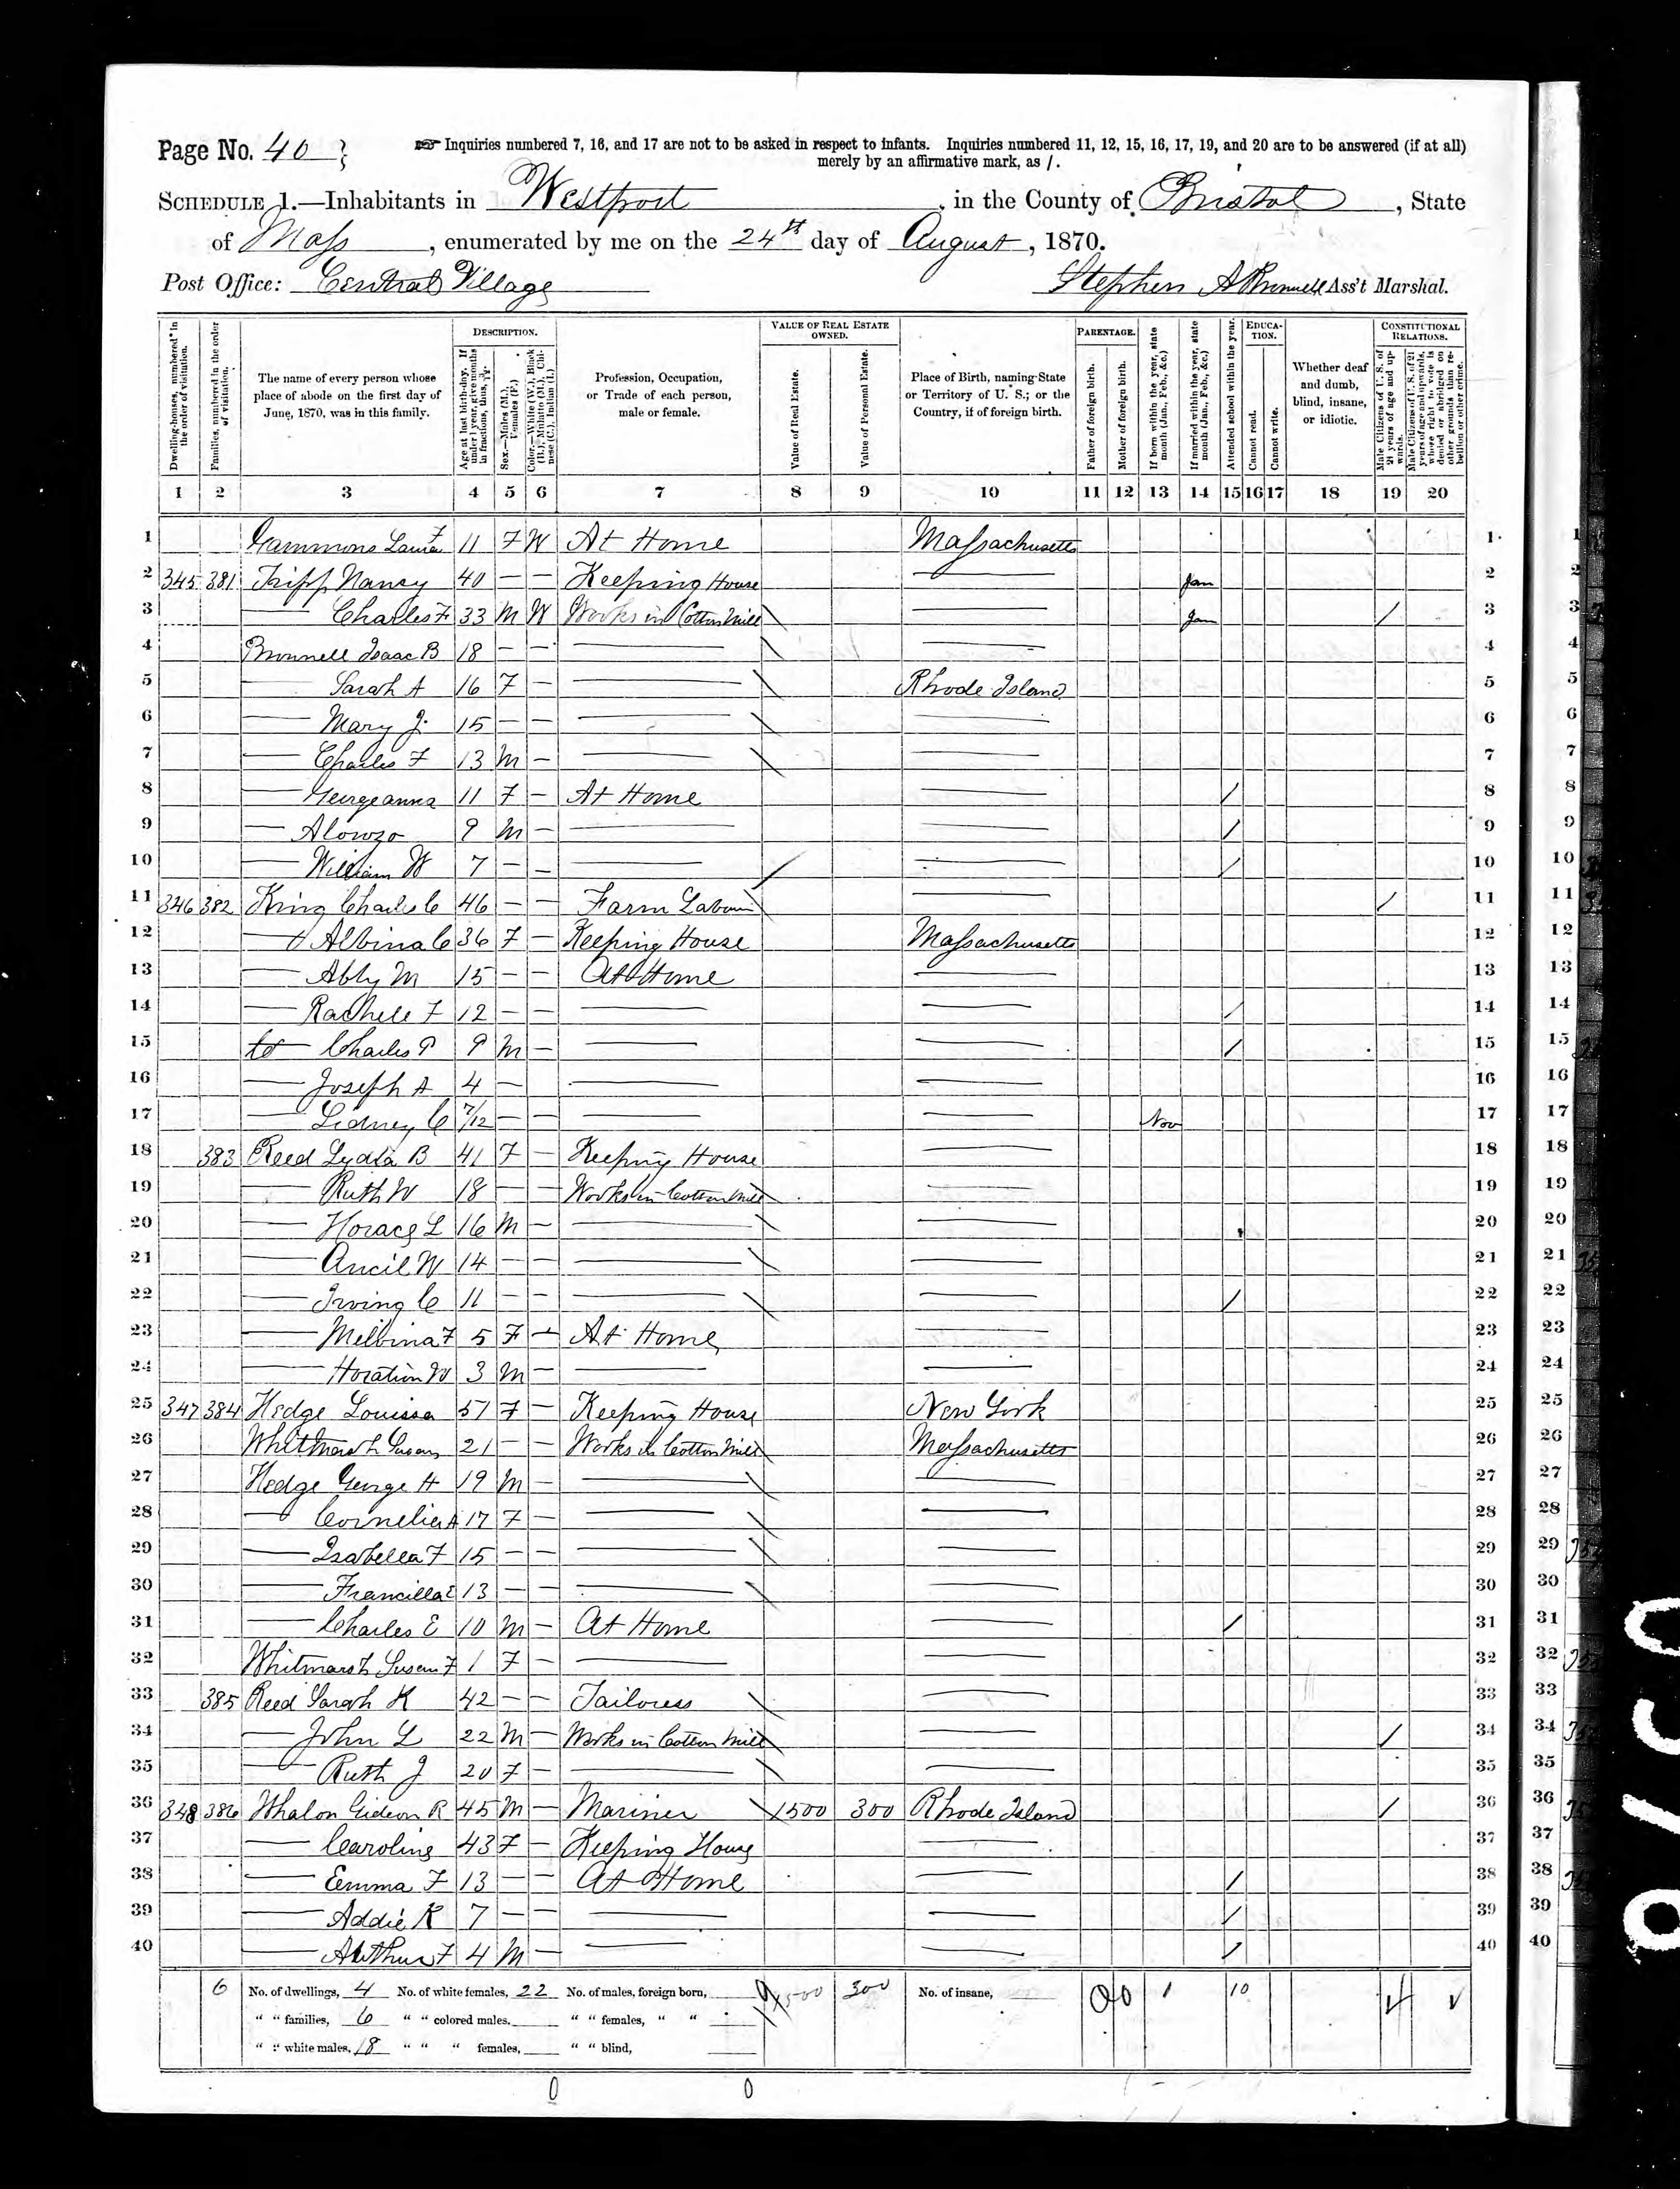 Page No. 40
Inquiries numbered 7, 16, and 17 are not to be asked in respect to infants. Inquiries numbered 11, 12, 15, 16, 17, 19, and 20 are to be answered (if at all)
merely by an affirmative mark, as /.
SCHEDULE 1.—Inhabitants in Westport, in the County of Bristol, State
of Mass, enumerated by me on the 24th day of August, 1870.
Post Office: Central Village
Stephen A Brownell Ass't Marshal.
Dwelling-houses, numbered in the order of visitation.
Families, numbered in the order of visitation.
The name of every person whose place of abode on the first day of June, 1870, was in this family.
DESCRIPTION.
Age at last birth-day. If under 1 year, give months in fractions, thus, 3/12
Sex.—Males (M.), Females (F.)
Color.—White (W.), Black (B.), Mulatto (M.), Chinese (C.), Indian (I.)
Profession, Occupation, or Trade of each person, male or female.
VALUE OF REAL ESTATE OWNED.
Value of Real Estate.
Value of Personal Estate.
Place of Birth, naming State or Territory of U. S.; or the Country, if of foreign birth.
PARENTAGE.
Father of foreign birth.
Mother of foreign birth.
If born within the year, state month (Jan., Feb., &c.)
If married within the year, state month (Jan., Feb., &c.)
Attended school within the year.
EDUCATION.
Cannot read.
Cannot write.
Whether deaf and dumb, blind, insane, or idiotic.
CONSTITUTIONAL RELATIONS.
Male Citizens of U. S. of 21 years of age and upwards.
Male Citizens of U. S. of 21 years of age and upwards, whose right to vote is denied or abridged on other grounds than rebellion or other crime.
1 2 3 4 5 6 7 8 9 10 11 12 13 14 15 16 17 18 19 20
1 Gammons Laura F 11 F W At Home Massachusetts 1
2 345 381 Tripp Nancy 40 — — Keeping House — Jan 2
3 — Charles F 33 M W Works in Cotton Mill — Jan / 3
4 Brownell Isaac B 18 — — — — 4
5 — Sarah A 16 F — — Rhode Island 5
6 — Mary J. 15 — — — — 6
7 — Charles F 13 M — — — 7
8 — Georgeanna 11 F — At Home — / 8
9 — Alonzo 9 M — — — / 9
10 — William W 7 — — — — / 10
11 346 382 King Charles C 46 — — Farm Labour — / 11
12 — Albina C 36 F — Keeping House Massachusetts 12
13 — Abby M 15 — — At Home — 13
14 — Rachele F 12 — — — — / 14
15 — Charles P 9 M — — — / 15
16 — Joseph A 4 — — — 16
17 — Sidney C 7/12 — — — — Nov 17
18 383 Reed Lydia B 41 F — Keeping House — 18
19 — Ruth W 18 — — Works in Cotton Mill — 19
20 — Horace L 16 M — — — 20
21 — Ancil W 14 — — — — 21
22 — Irving C 11 — — — — / 22
23 — Melbina F 5 F — At Home — 23
24 — Horation W 3 M — — — 24
25 347 384 Hedge Louissa 51 F — Keeping House New York 25
26 Whitmarsh Susan 21 — — Works in Cotton Mill Massachusetts 26
27 Hedge George H 19 M — — — 27
28 — Cornelia A 17 F — — — 28
29 — Isabella F 15 — — — — 29
30 — Francilla E 13 — — — — 30
31 — Charles E 10 M — At Home — / 31
32 Whitmarsh Susan F 1 F — — 32
33 385 Reed Sarah K 42 — — Tailoress — 33
34 — John L 22 M — Works in Cotton Mill — / 34
35 — Ruth J 20 F — — — 35
36 348 386 Whalon Gideon R 45 M — Mariner 1500 300 Rhode Island / 36
37 — Caroline 43 F — Keeping House — 37
38 — Emma F 13 — — At Home — / 38
39 — Addie K 7 — — — — / 39
40 — Arthur F 4 M — — — / 40
6 No. of dwellings, 4 No. of white females, 22 No. of males, foreign born, 1500 300 No. of insane, 1 10
" " families, 6 " " colored males, " " females, " "
" " white males, 18 " " " females, " " blind,
0 0